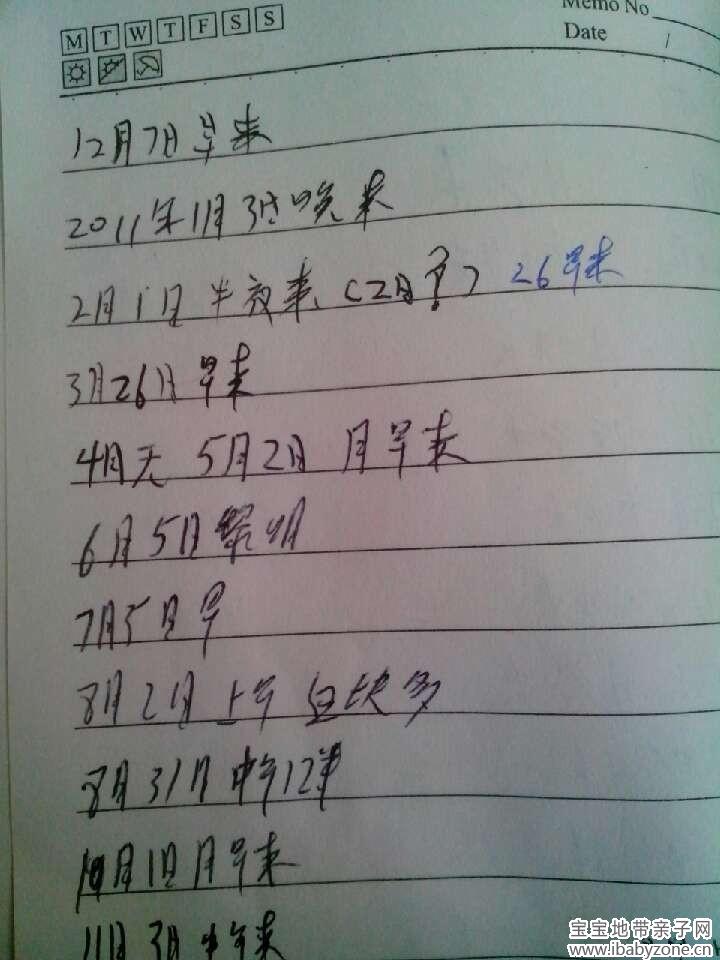 Memo No
M T W T F S S
Date /
12月7日早来
2011年1月3日晚来
2月1日半夜来(2月?) 26早来
3月26日早来
4月无 5月2日 月早来
6月5日黎明
7月5日早
8月2日上午 血块多
8月31日中午12半
10月1日月早来
11月3日中午来
宝宝地带亲子网
www.ibabyzone.cn